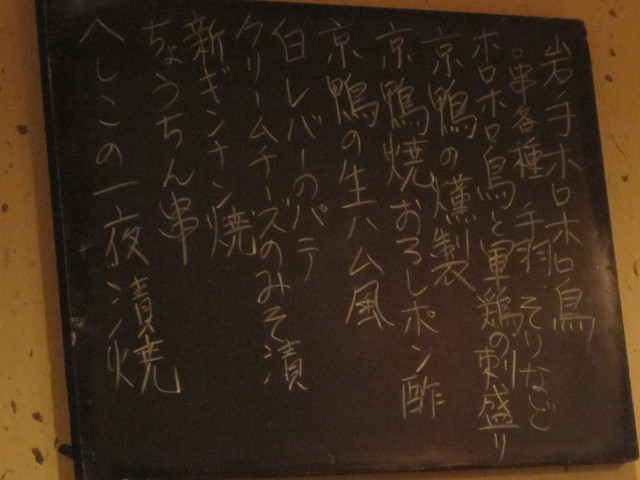 岩手ホロホロ鳥
。串各種 手羽 そりなど
ホロホロ鳥と軍鶏の刺盛り
京鴨の燻製
京鴨焼おろしポン酢
京鴨の生ハム風
白レバーのパテ
クリームチーズのみそ漬
新ギンナン焼
ちょうちん串
へしこの一夜漬焼